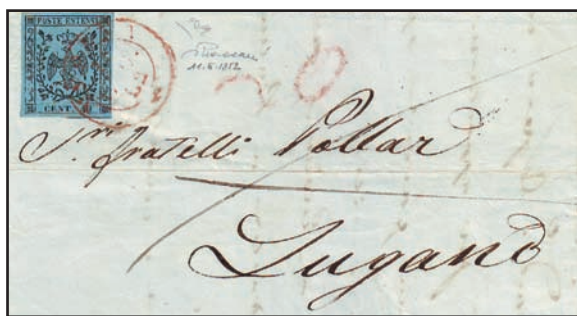 POSTE ESTENSI
CENT.
11.5.1852
20
Sri. fratelli Pollar
Lugano